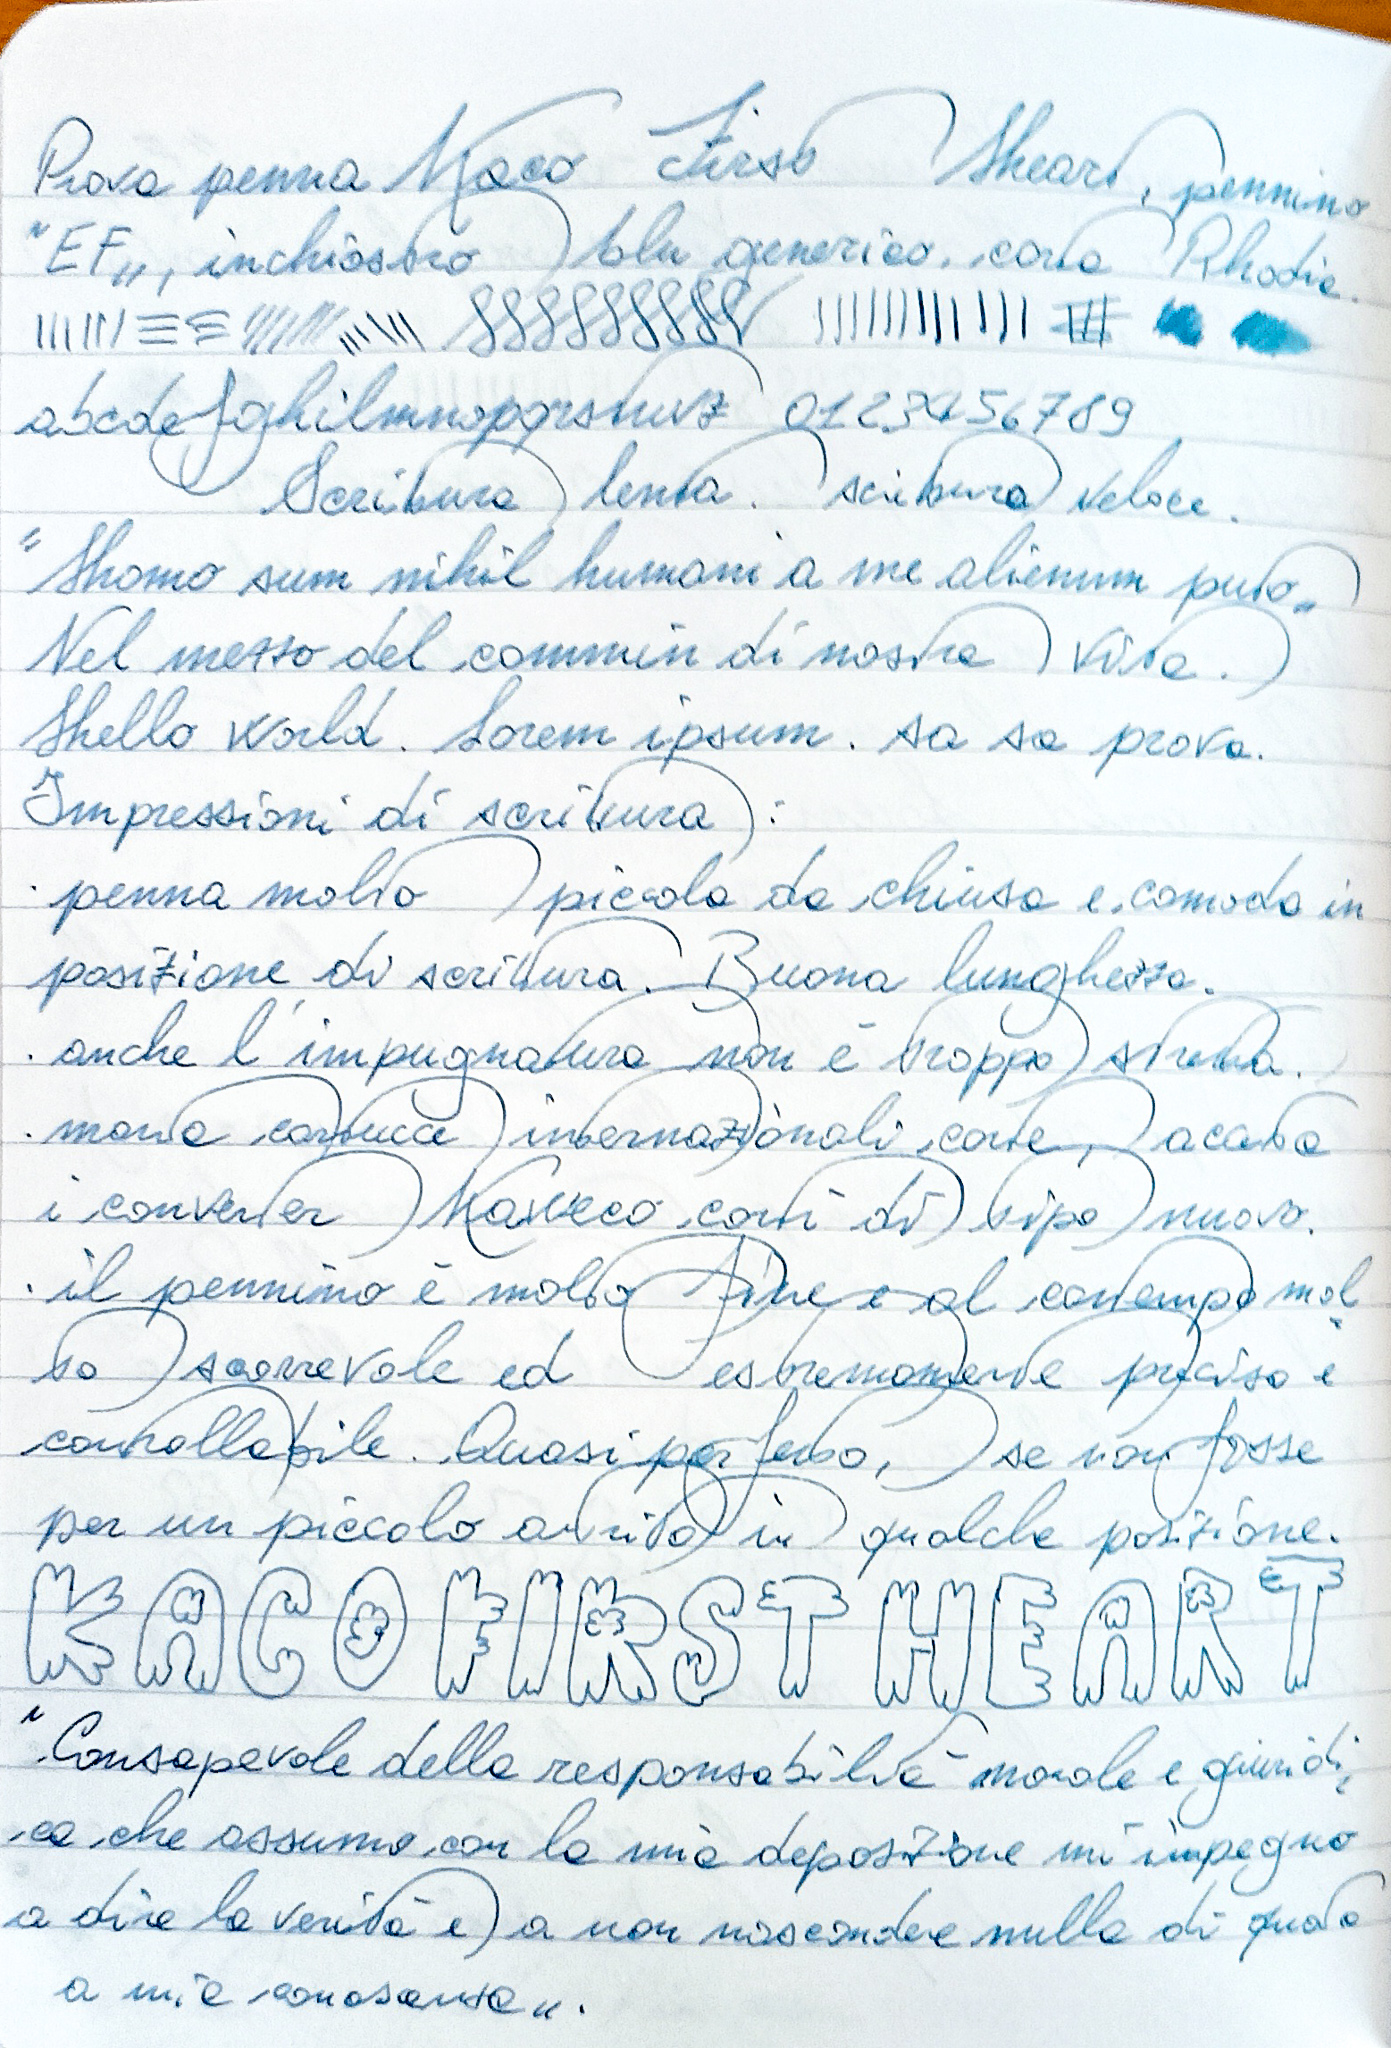 Prova penna Kaco First Heart, pennino
"EF", inchiostro blu generico, carta Rhodia.
abcdefghilmnopqrstuvz 0123456789
Scrittura lenta. scrittura veloce.
"Homo sum nihil humani a me alienum puto"
Nel mezzo del cammin di nostra vita.
Hello world. Lorem ipsum. sa sa prova.
Impressioni di scrittura:
· penna molto piccola da chiusa e comoda in
posizione di scrittura. Buona lunghezza.
· anche l'impugnatura non è troppo stretta.
· monta cartucce internazionali corte, accetta
i converter Kaweco corti di tipo nuovo.
· il pennino è molto fine e al contempo mol
to scorrevole ed estremamente preciso e
controllabile. Quasi perfetto, se non fosse
per un piccolo attrito in qualche posizione.
KACO FIRST HEART
"Consapevole della responsabilità morale e giuridi
ca che assumo con la mia deposizione mi impegno
a dire la verità e a non nascondere nulla di quanto
a mia conoscenza".